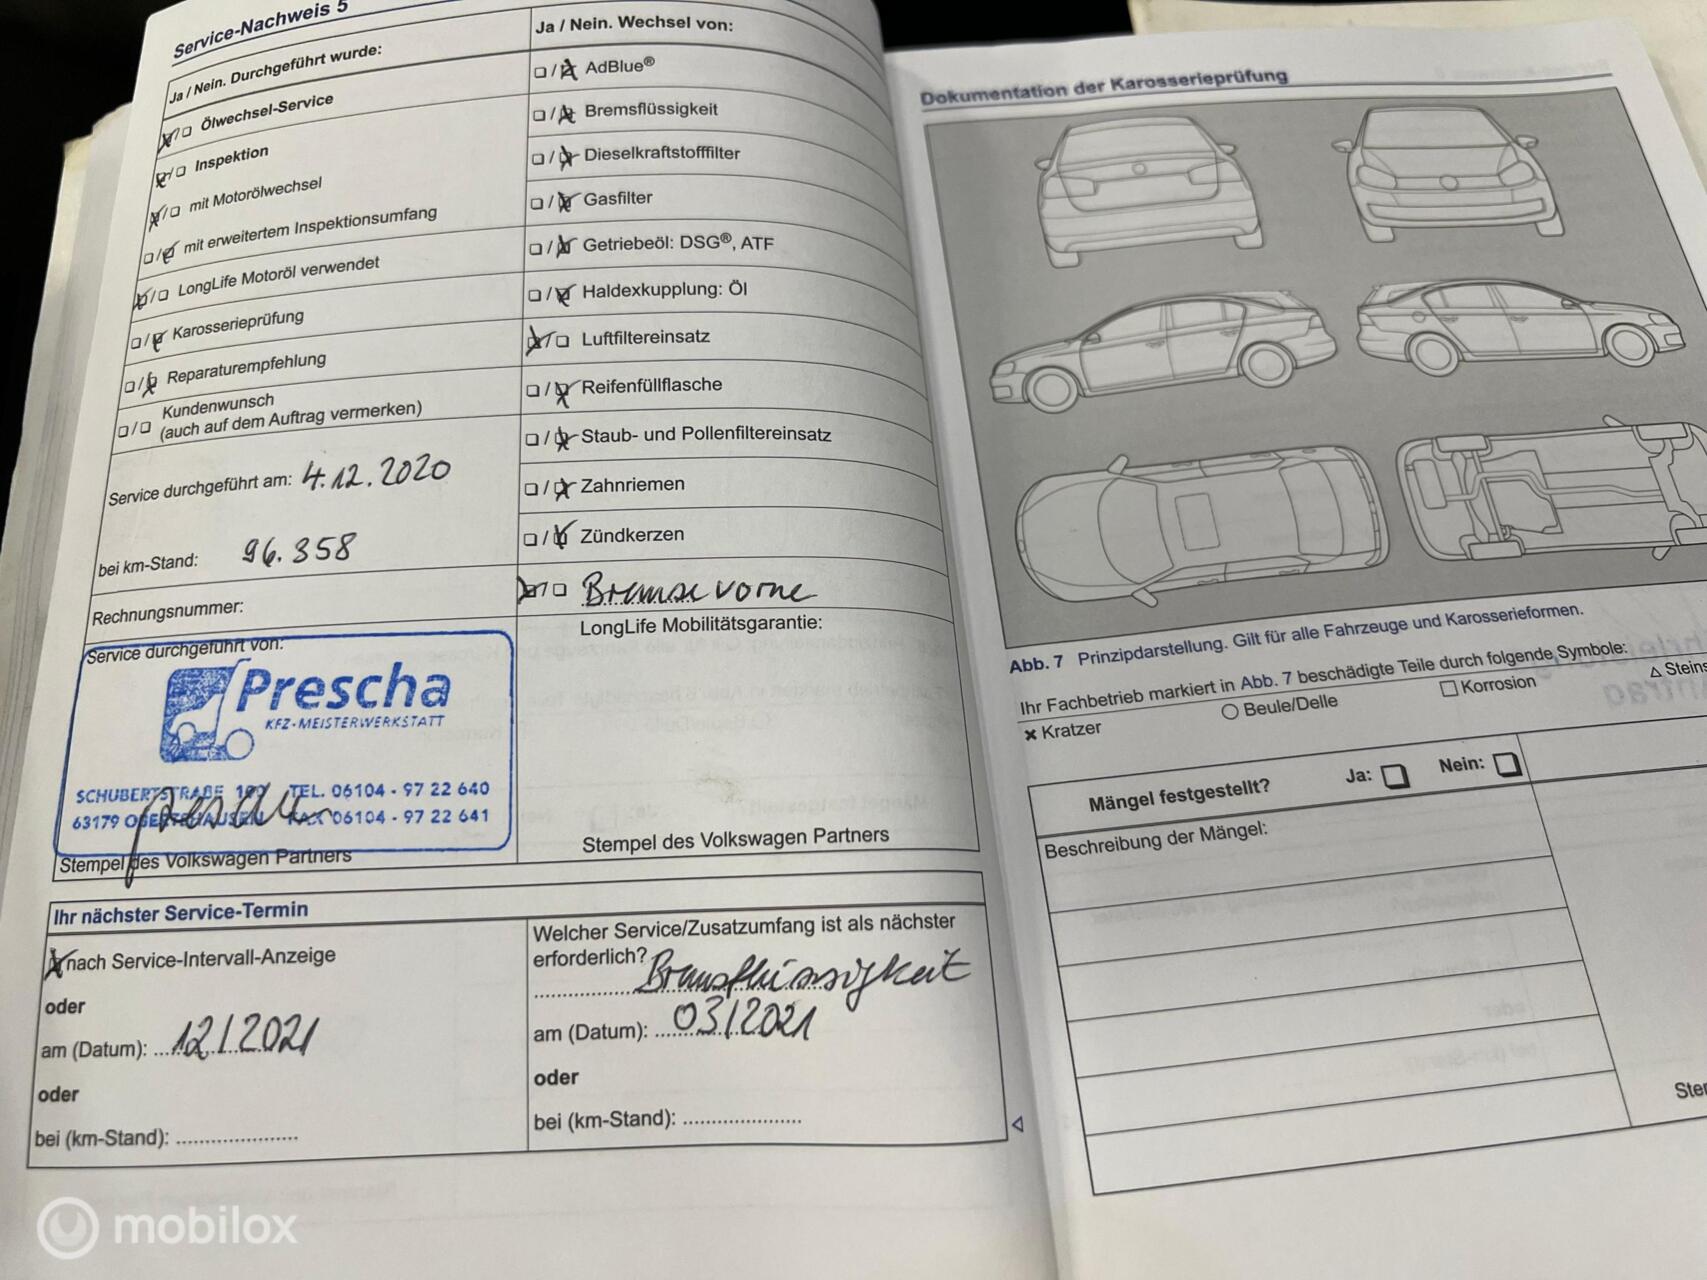 Service-Nachweis 5
Ja / Nein. Durchgeführt wurde:
Ölwechsel-Service
Inspektion
mit Motorölwechsel
mit erweitertem Inspektionsumfang
LongLife Motoröl verwendet
Karosserieprüfung
Reparaturempfehlung
Kundenwunsch
(auch auf dem Auftrag vermerken)
Service durchgeführt am: 4.12.2020
bei km-Stand: 96.358
Rechnungsnummer:
Service durchgeführt von:
Prescha
KFZ-MEISTERWERKSTATT
SCHUBERTSTRAßE TEL. 06104 - 97 22 640
63179 OBERTSHAUSEN FAX 06104 - 97 22 641
Stempel des Volkswagen Partners
Ja / Nein. Wechsel von:
AdBlue®
Bremsflüssigkeit
Dieselkraftstofffilter
Gasfilter
Getriebeöl: DSG®, ATF
Haldexkupplung: Öl
Luftfiltereinsatz
Reifenfüllflasche
Staub- und Pollenfiltereinsatz
Zahnriemen
Zündkerzen
Bremse vorne
LongLife Mobilitätsgarantie:
Stempel des Volkswagen Partners
Ihr nächster Service-Termin
nach Service-Intervall-Anzeige
oder
am (Datum): 12/2021
oder
bei (km-Stand):
Welcher Service/Zusatzumfang ist als nächster
erforderlich? Bremsflüssigkeit
am (Datum): 03/2021
oder
bei (km-Stand):
Dokumentation der Karosserieprüfung
Abb. 7 Prinzipdarstellung. Gilt für alle Fahrzeuge und Karosserieformen.
Ihr Fachbetrieb markiert in Abb. 7 beschädigte Teile durch folgende Symbole:
Kratzer Beule/Delle Korrosion Steins
Mängel festgestellt? Ja: Nein:
Beschreibung der Mängel:
Ster
mobilox